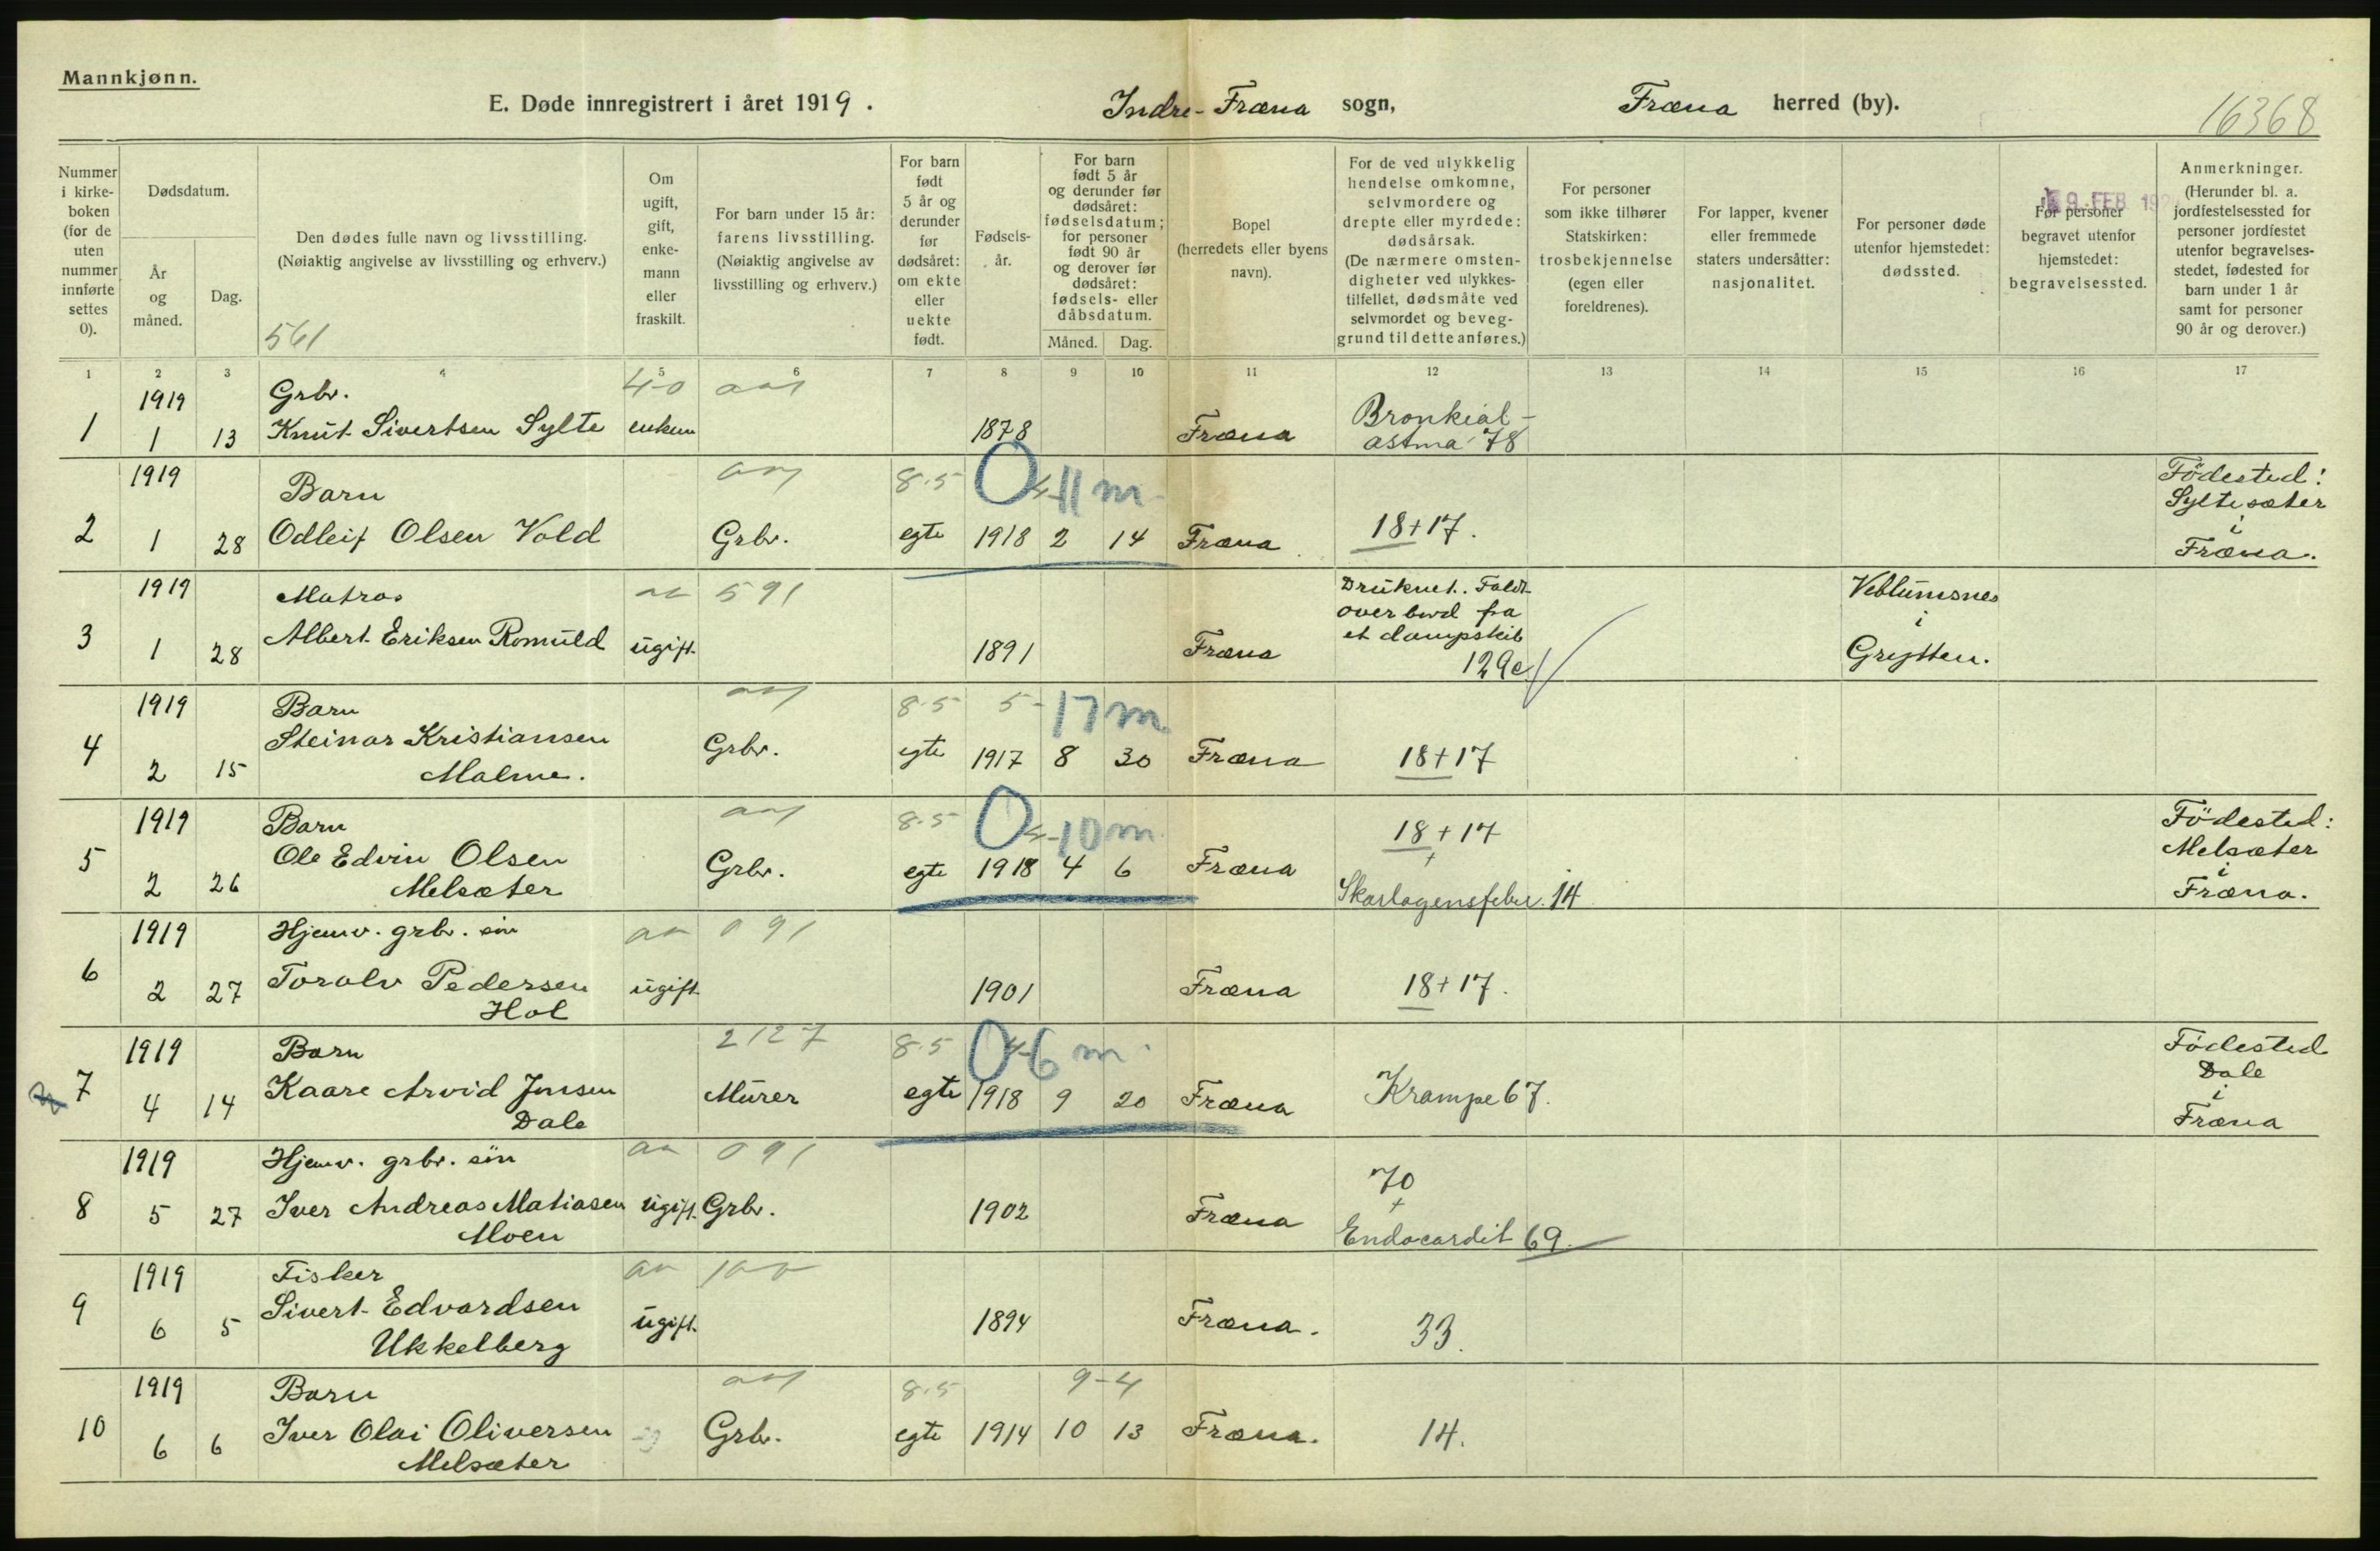 Mannkjønn.
E. Døde innregistrert i året 1919. Indre-Fræna sogn, Fræna herred (by).
16368
Nummer i kirke-boken (for de uten nummer innførte settes 0).
Dødsdatum.
År og måned.
Dag.
Den dødes fulle navn og livsstilling.
(Nøiaktig angivelse av livsstilling og erhverv.)
561
Om ugift, gift, enke-mann eller fraskilt.
For barn under 15 år: farens livsstilling.
(Nøiaktig angivelse av livsstilling og erhverv.)
For barn født 5 år og derunder før dødsåret: om ekte eller uekte født.
Fødsels-år.
For barn født 5 år og derunder før dødsåret: fødselsdatum; for personer født 90 år og derover før dødsåret: fødsels- eller dåbsdatum.
Måned. Dag.
Bopel (herredets eller byens navn).
For de ved ulykkelig hendelse omkomne, selvmordere og drepte eller myrdede: dødsårsak.
(De nærmere omsten-digheter ved ulykkes-tilfellet, dødsmåte ved selvmordet og beveg-grund til dette anføres.)
For personer som ikke tilhører Statskirken: trosbekjennelse (egen eller foreldrenes).
For lapper, kvener eller fremmede staters undersåtter: nasjonalitet.
For personer døde utenfor hjemstedet: dødssted.
9. FEB 192
For personer begravet utenfor hjemstedet: begravelsessted.
Anmerkninger.
(Herunder bl. a. jordfestelsessted for personer jordfestet utenfor begravelses-stedet, fødested for barn under 1 år samt for personer 90 år og derover.)
1 2 3 4 5 6 7 8 9 10 11 12 13 14 15 16 17
1919 Grbr. 40
1 1 13 Knut Sivertsen Sylte enkem 1878 Fræna Bronkial-
astma 78
1919 Barn 8.5 0 4 11 m Födested:
Syltesæter
2 1 28 Odleif Olsen Vold Grbr. egte 1918 2 14 Fræna 18+17. i
Fræna.
1919 Matros 591 Druknet. Faldt Veblumsnes
over bord fra i
3 1 28 Albert Eriksen Romuld ugift 1891 Fræna et dampskib Grytten.
129e
1919 Barn 8.5 5- 17 m
4 2 15 Steinar Kristiansen Grbr. egte 1917 8 30 Fræna 18+17
Malme.
1919 Barn 8.5 0 4-10 m. 18+17 Födested:
5 2 26 Ole Edvin Olsen Grbr. egte 1918 4 6 Fræna + Melsæter
Melsæter Skarlagensfeber. 14 i
Fræna.
1919 Hjemv. grbr. sön 091
6 2 27 Toralv Pedersen ugift 1901 Fræna 18+17.
Hol
1919 Barn 2127 8.5 0 4-6 m. Födested
7 4 14 Kaare Arvid Jensen Murer egte 1918 9 20 Fræna Krampe 67. Dale
Dale i
Fræna
1919 Hjemv. grbr. sön 091 70
8 5 27 Iver Andreas Matiasen ugift Grbr. 1902 Fræna +
Moen Endocardit 69.
1919 Fisker
9 6 5 Sivert Edvardsen ugift 1894 Fræna. 33.
Ukkelberg
1919 Barn 8.5 9-4
10 6 6 Iver Olai Oliversen Grbr. egte 1914 10 13 Fræna. 14.
Melsæter